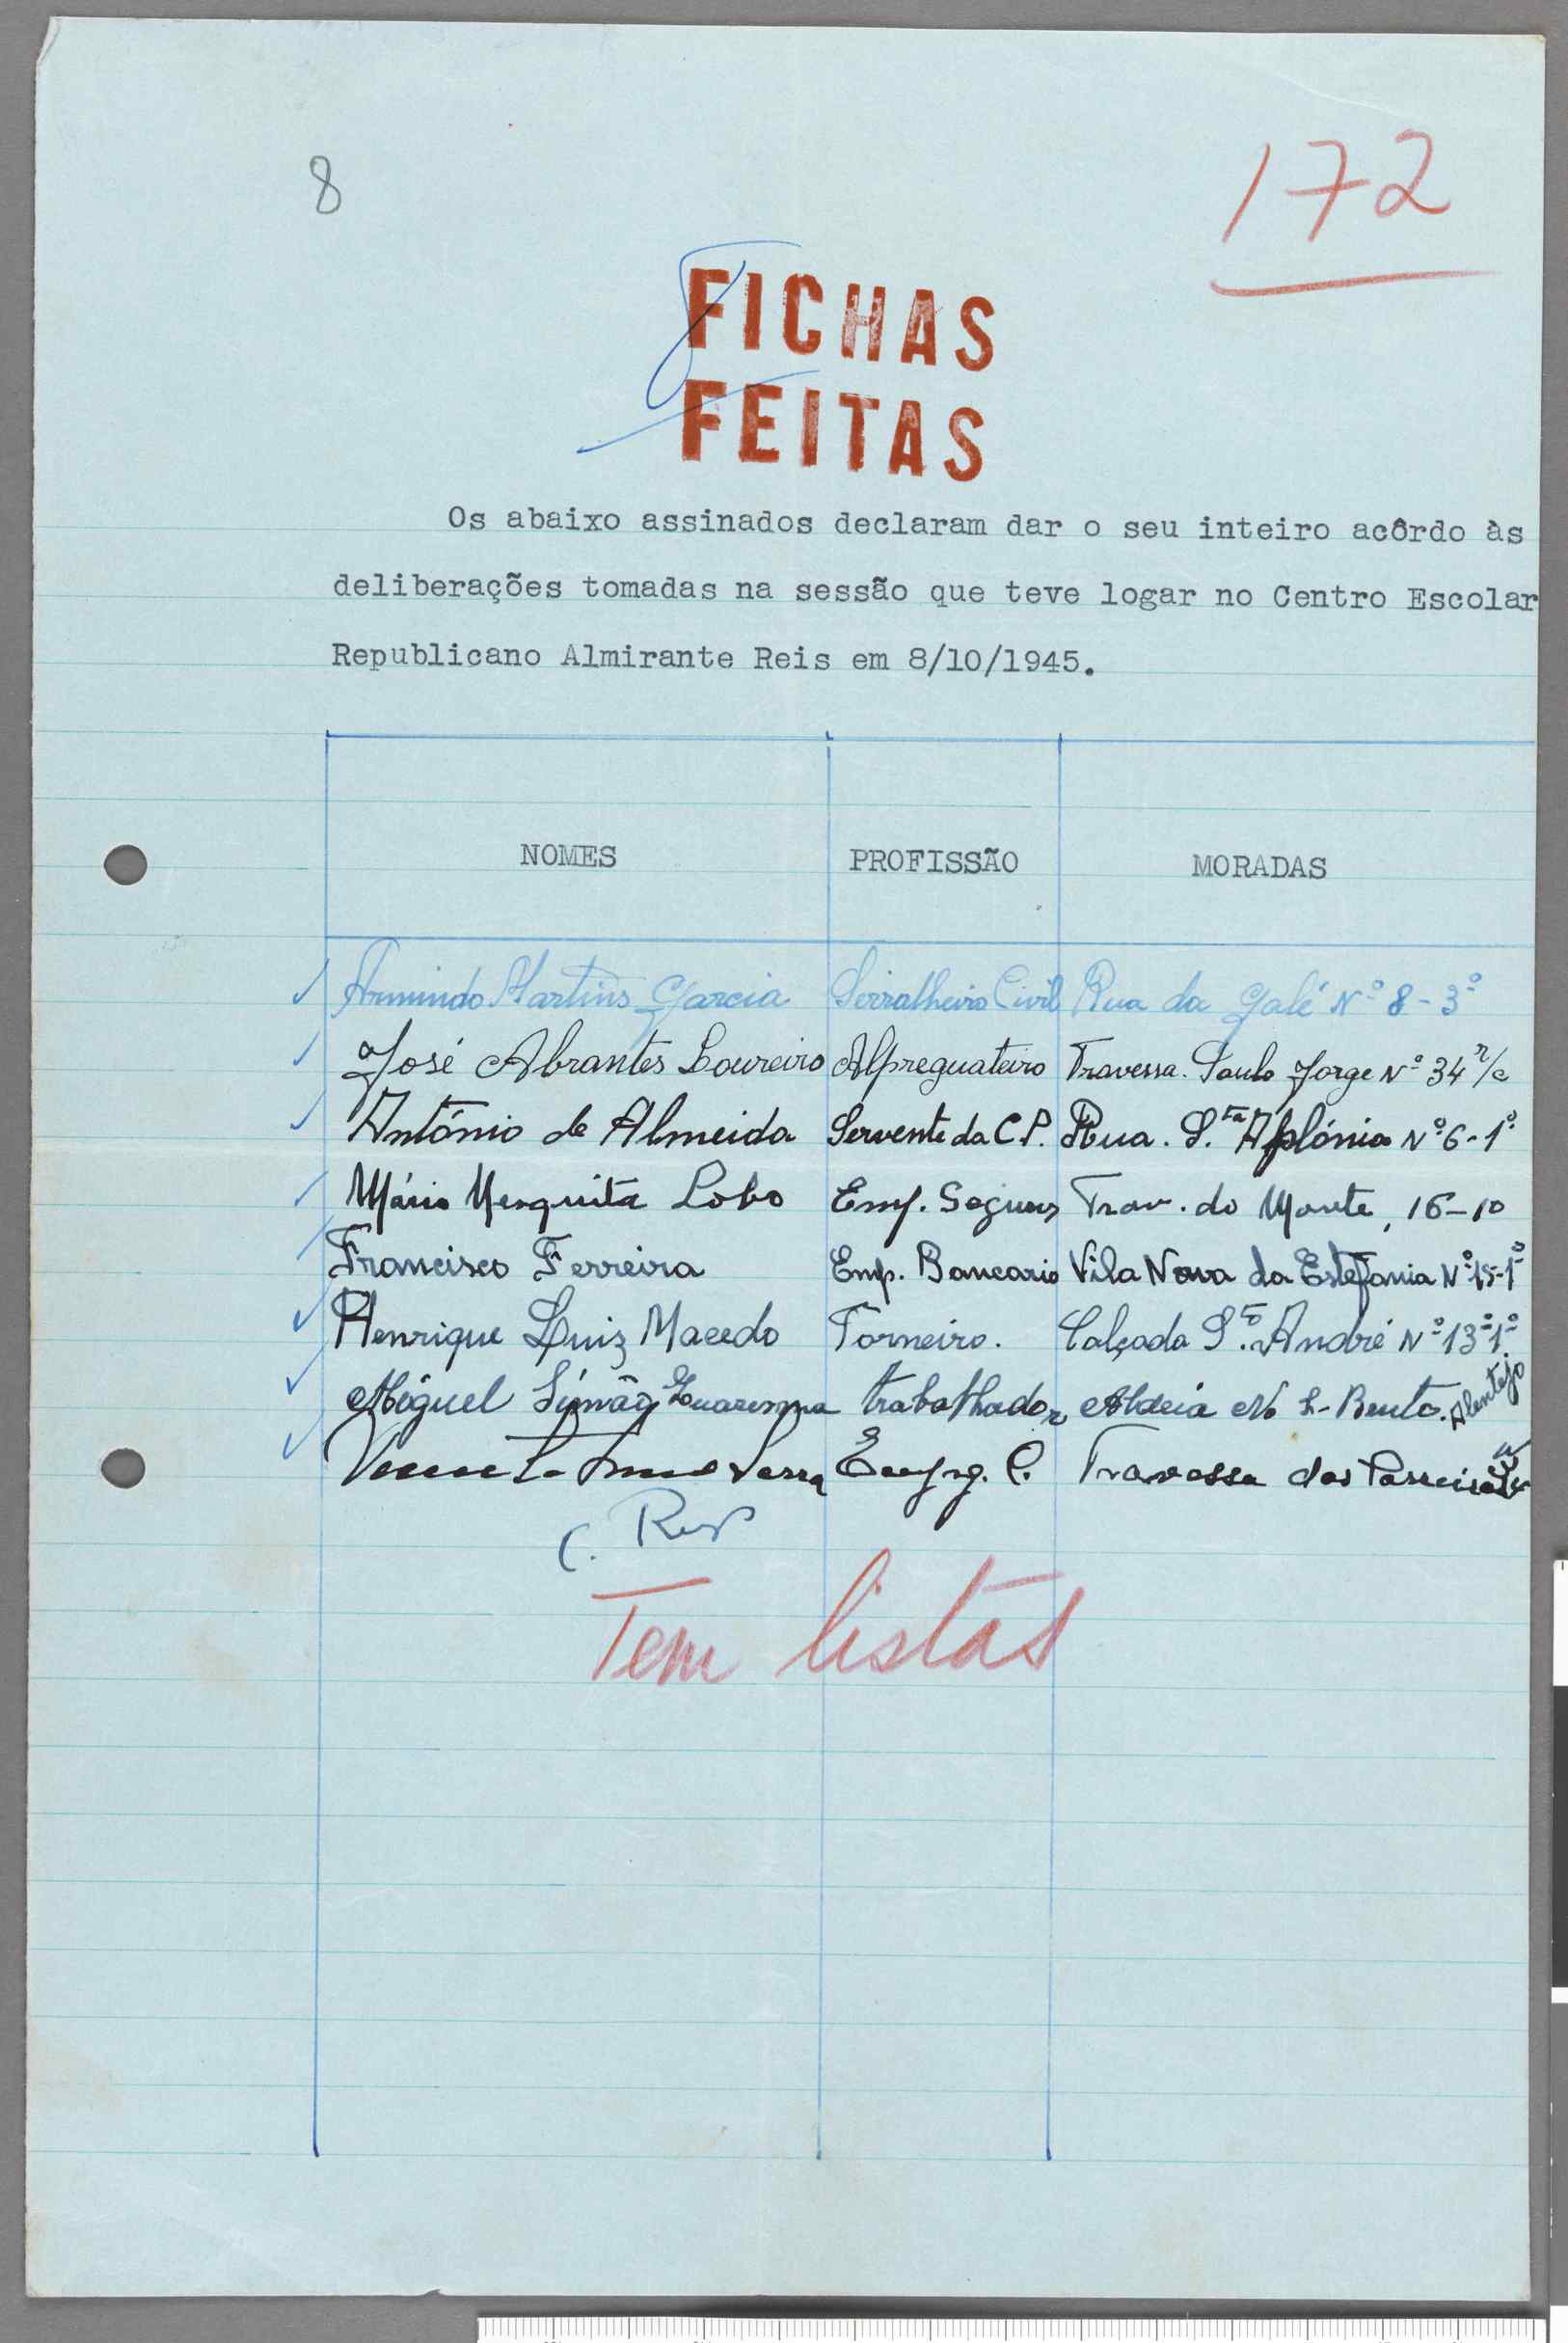 8
172
FICHAS
FEITAS
Os abaixo assinados declaram dar o seu inteiro acôrdo às
deliberações tomadas na sessão que teve logar no Centro Escolar
Republicano Almirante Reis em 8/10/1945.
NOMES PROFISSÃO MORADAS
Armindo Martins Garcia Serralheiro Civil Rua da Galé Nº 8-3º
José Abrantes Loureiro Alpreguateiro Travessa. Paulo Jorge Nº 34 r/c
António de Almeida Servente da C.P. Rua. S.ta Aplónia Nº 6-1º
Mário Mesquita Lobo Emp. Seguros Trav. do Monte, 16-1º
Francisco Ferreira Emp. Bancario Vila Nova da Estefania Nº 15-1º
Henrique Luiz Macedo Torneiro. Calçada S.to André Nº 13-1º
Miguel Simão Quaresma trabalhador Aldeia N. S. Bento. Alentejo
Serra Travessa das
Tem listas